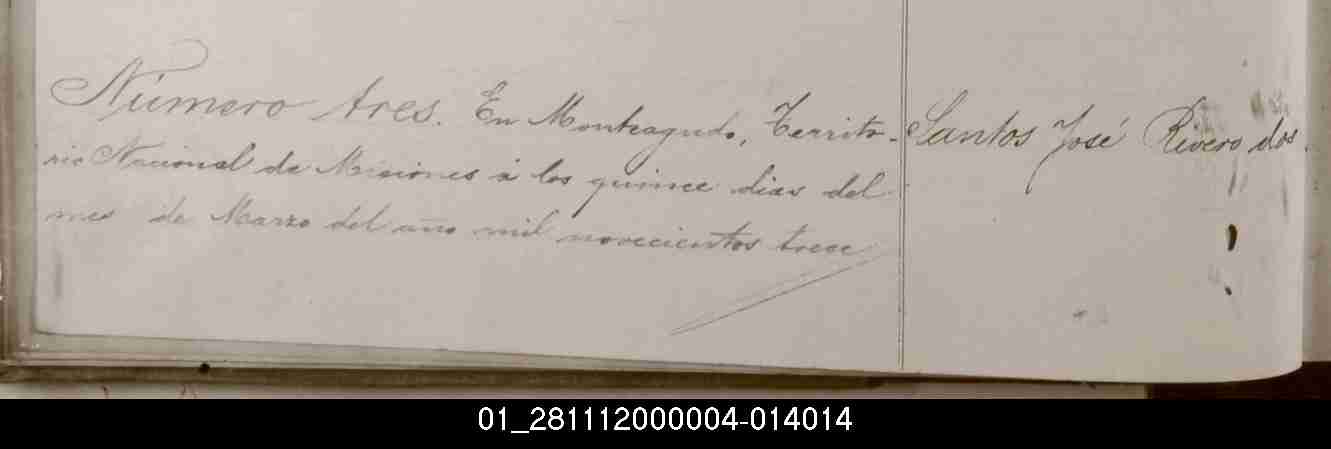 Número tres. En Monteagudo, Territo-
rio Nacional de Misiones á los quince dias del
mes de Marzo del año mil novecientos trece
Santos José Rivero dos
01_281112000004-014014